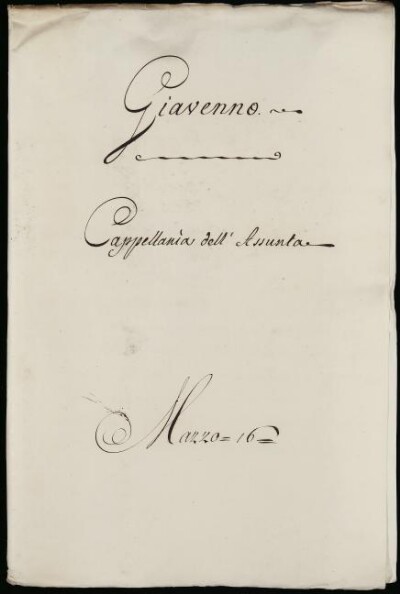 Giavenno.
Cappellania dell' Assunta
Mazzo = 16 =